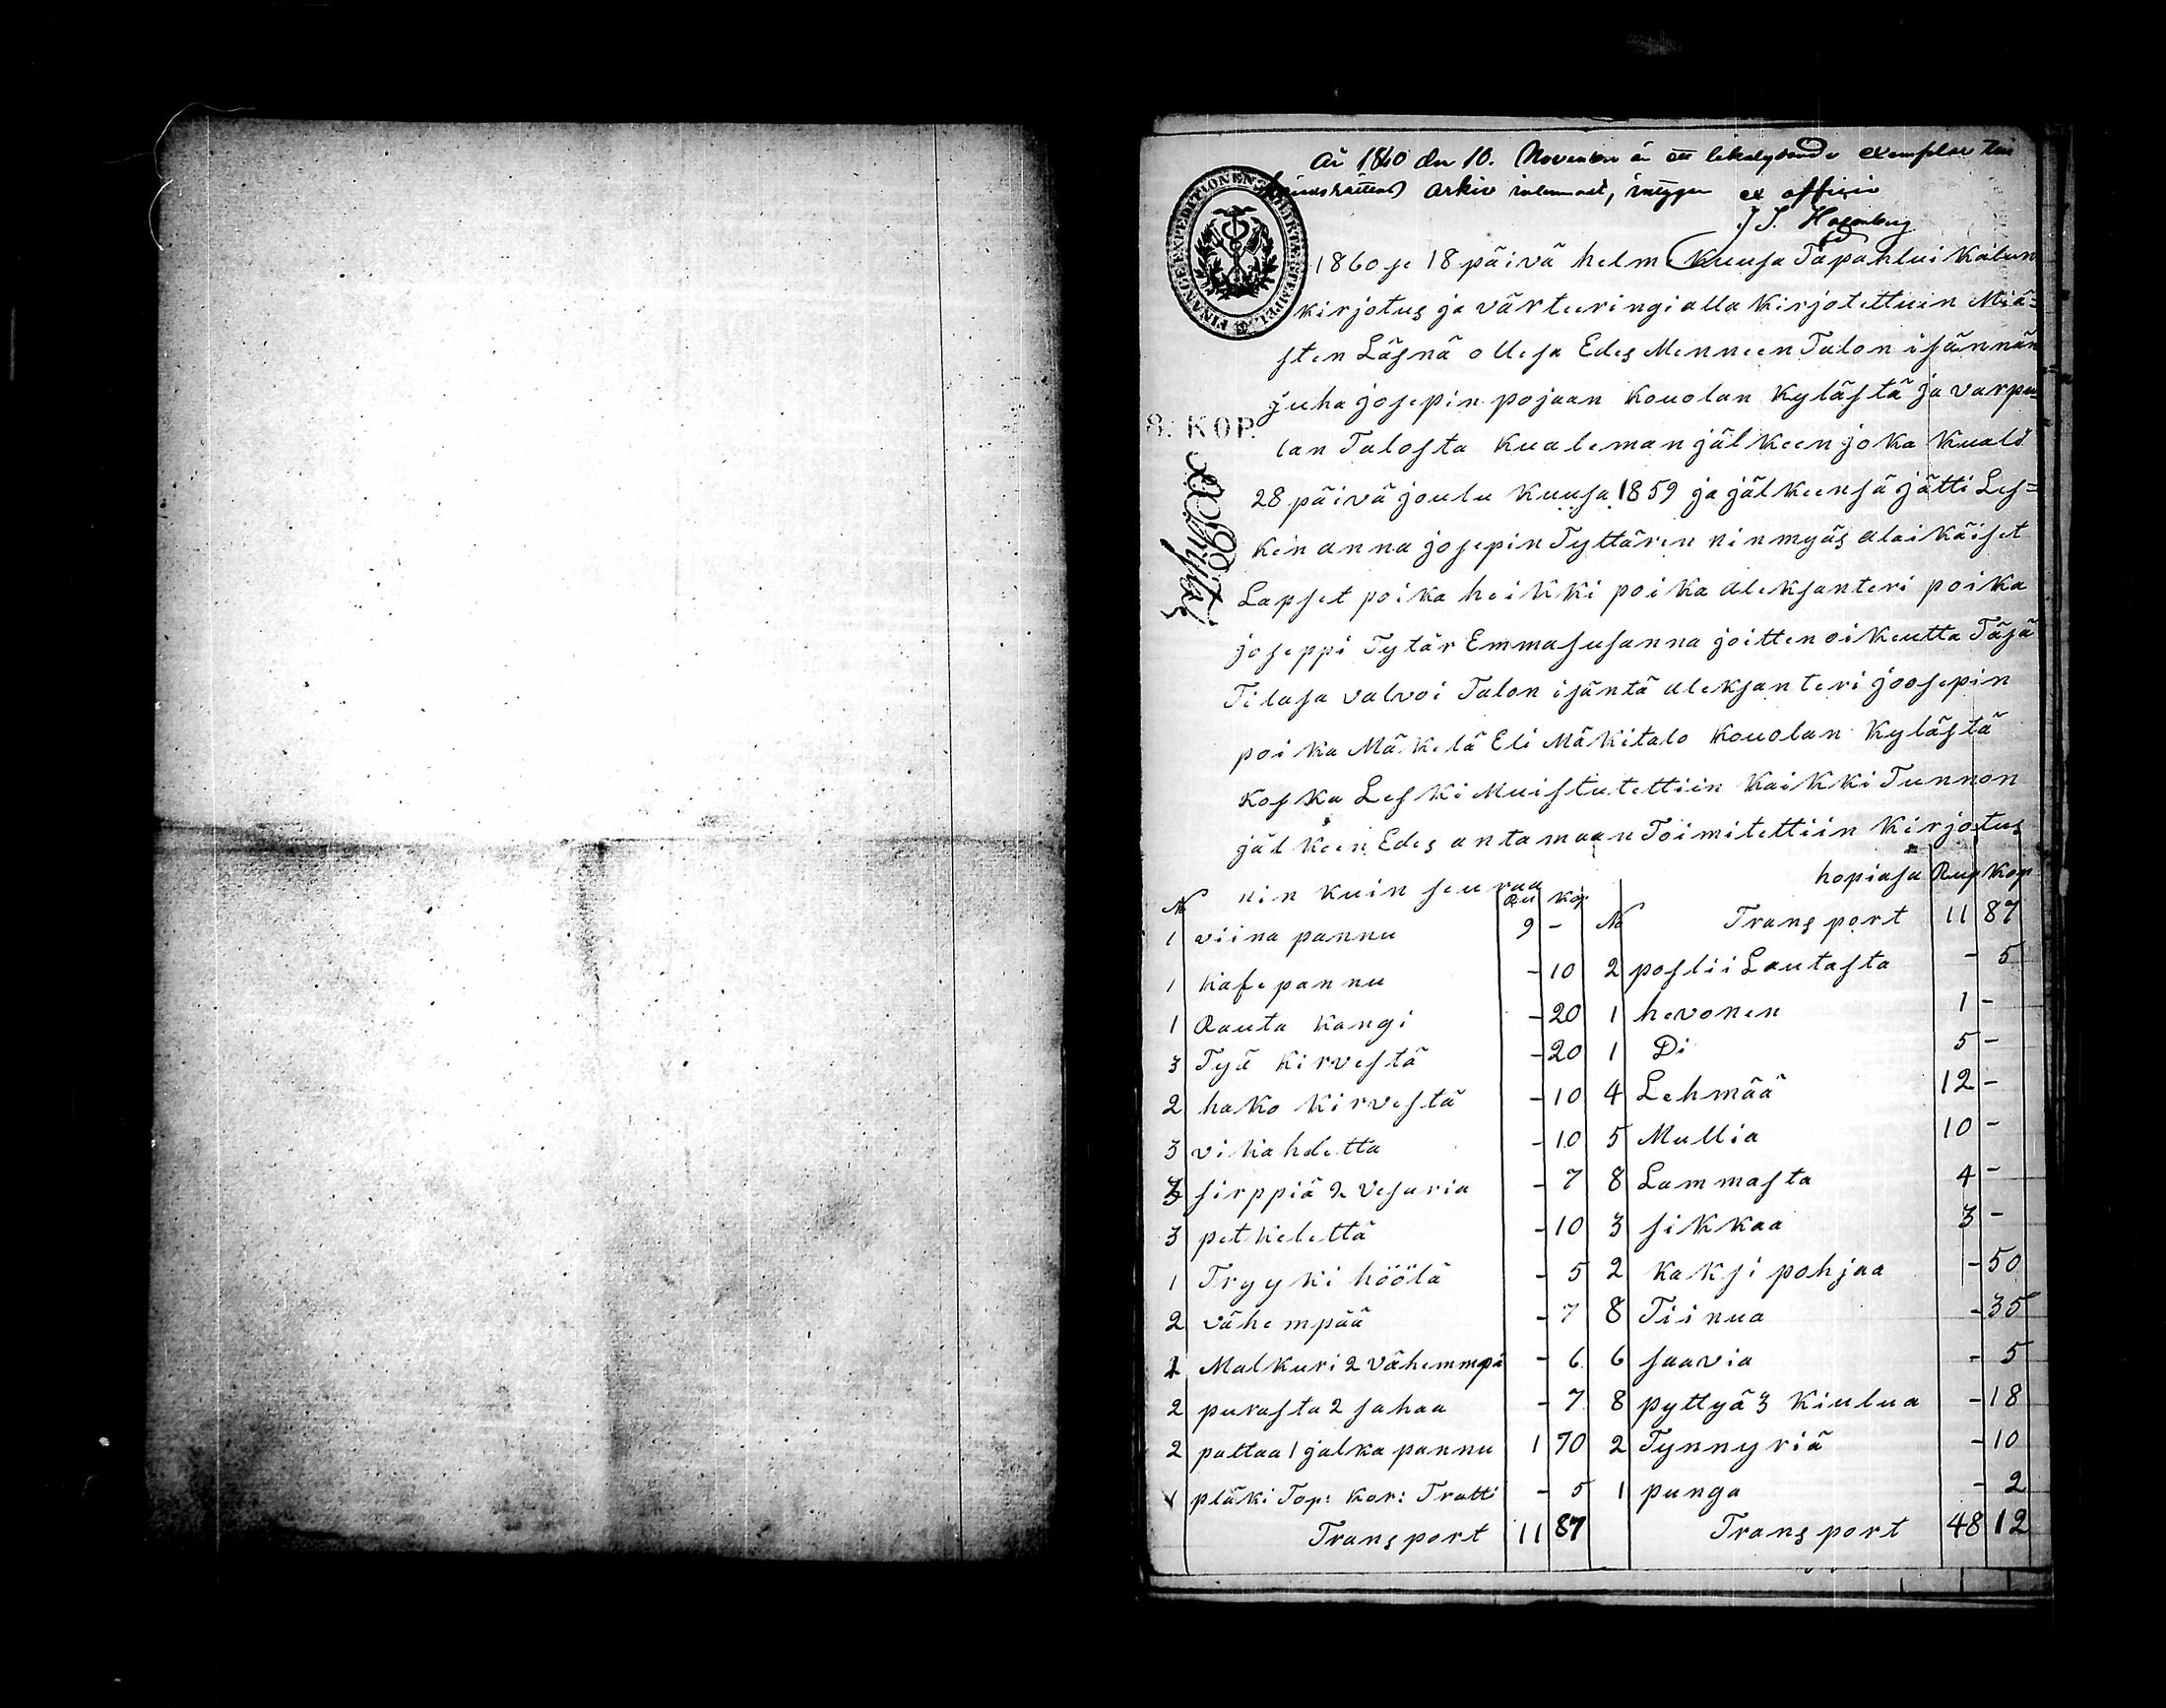 År 1860 den 10. November är ett likalydande exemplar till
Häradsrättens Arkiv inlemnadt, intygar ex officio
J S. Hagenberg
FINANCE EXPEDITIONENS CHARTÆ STEMPEL
8. KOP.
1860 se 18 päivä helm kuusa Tapahtui kalun
kirjotus ja värteeringi alla kirjotettuin Miä=
sten Läsnä ollesa Edes Menneen Talon isännän
juha josepin pojaan kouolan kylästä ja varpu=
lan Talosta kualeman jälkeen joka kuali
28 päivä joulu kuusa 1859 ja jälkeensä jätti Les=
ken anna josepin Tyttären nin myäs alaikäiset
Lapset poika heikki poika aleksanteri poika
joseppi Tytär Emma susanna joitten oikeutta Täsä
Tilasa valvoi Talon isäntä aleksanteri joosepin
poika Mäkelä Eli Mäkitalo kouolan kylästä
koska Leski Muistutettiin kaikki Tunnon
jälkeen Edes antamaan Toimitettiin kirjotus
nin kuin seuraa
hopiasa Rup Kop
No Ru kop
1 viina pannu 9 -
1 kafe pannu - 10
1 Rauta kangi - 20
3 Tyä kirvestä - 20
2 hako kirvestä - 10
3 vikahdetta - 10
3 sirppiä 2 vesuria - 7
3 petkelettä - 10
1 Tryyki höölä - 5
2 vähempää - 7
1 Malkuri 2 vähemmpä - 6
2 purasta 2 sahaa - 7
2 pattaa 1 jalka pannu 1 70
1 pläki Top: kor: Tratti - 5
Transport 11 87
No Transport 11 87
2 poslii Lautasta - 5
1 hevonen 1 -
1 Di 5 -
4 Lehmää 12 -
5 Mullia 10 -
8 Lammasta 4 -
3 sikkaa 3 -
2 kaksi pohjaa - 50
8 Tiinua - 35
6 saavia - 5
8 pyttyä 3 kiulua - 18
2 Tynnyriä - 10
1 punga - 2
Transport 48 12